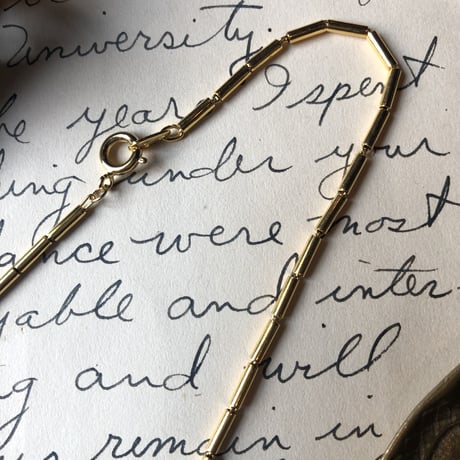 University.
he year I spent
ing under your
dance were most
yable and inter-
g and will
us remain in